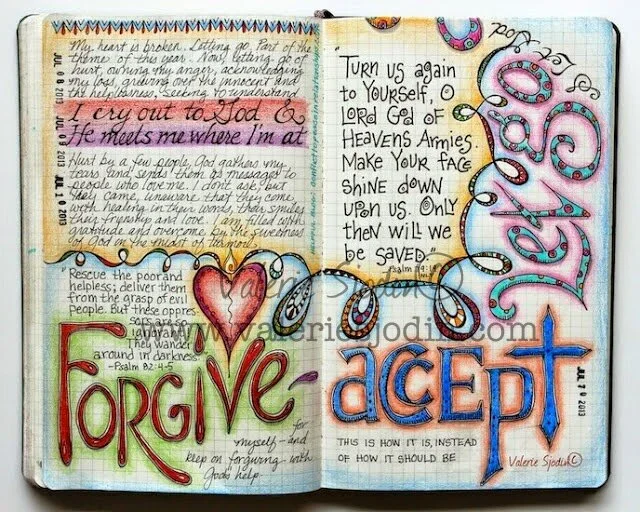 My heart is broken. Letting go, Part of the
theme of this year. Now, letting go of
hurt, owning my anger, acknowledging
my loss, grieving over the innocent and
the helplessness, seeking to understand
I cry out to God &
He meets me where I'm at
Hurt by a few people, God gathers my
tears and sends them as messages to
people who love me. I don't ask but
they came, unaware that they come
with healing in their words, their smiles
their friendship and love. I am filled with
gratitude and overcome by the sweetness
of God in the midst of turmoil
JUL 0 8 2013
JUL 0 9 2013
JUL 1 0 2013
"Rescue the poor and
helpless; deliver them
from the grasp of evil
people. But these oppres
sors are so
ignorant
They wander
around in darkness.
-Psalm 82:4-5
FORGIVE-
for
myself-and
keep on forgiving-with
God's help-
"Turn us again
to Yourself, O
Lord God of
Heavens Armies.
Make Your face
shine down
upon us. Only
then will we
be saved."
Let go
& Let God
accept
THIS IS HOW IT IS, INSTEAD
OF HOW IT SHOULD BE
2013
Valerie Sjodin©
Valerie Sjodin©
www.valeriesjodin.com